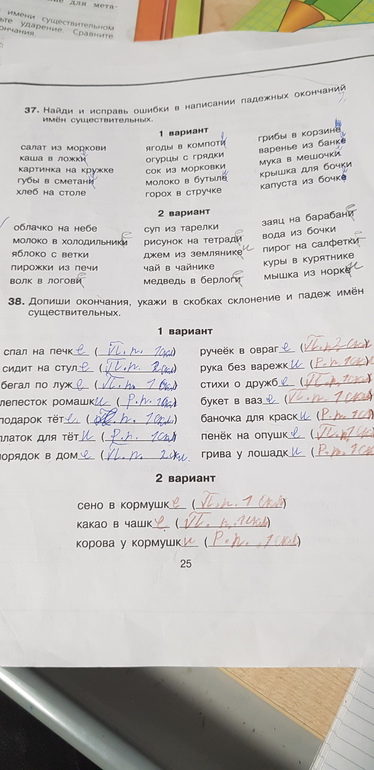 ние для мета-
имени существительном
ьте ударение. Сравните
ончания.
37. Найди и исправь ошибки в написании падежных окончаний
имён существительных.
1 вариант
салат из моркови
каша в ложки
картинка на кружке
губы в сметани
хлеб на столе
ягоды в компоти
огурцы с грядки
сок из морковки
молоко в бутыле
горох в стручке
грибы в корзине
варенье из банке
мука в мешочки
крышка для бочки
капуста из бочке
2 вариант
облачко на небе
молоко в холодильники
яблоко с ветки
пирожки из печи
волк в логови
суп из тарелки
рисунок на тетради
джем из землянике
чай в чайнике
медведь в берлоги
заяц на барабани
вода из бочки
пирог на салфетки
куры в курятнике
мышка из норке
38. Допиши окончания, укажи в скобках склонение и падеж имён
существительных.
1 вариант
спал на печке (П.п. 1скл)
сидит на стуле (П.п. 2скл)
бегал по луже (П.п. 1скл)
лепесток ромашки (Р.п. 1скл)
подарок тёте ( п. 1скл.)
платок для тёти (Р.п. 1скл)
порядок в доме (П.п. 2скл.
ручеёк в овраге (П.п. 2скл)
рука без варежки (Р.п. 1скл)
стихи о дружбе (П.п. 1скл)
букет в вазе (П.п. 1скл)
баночка для краски (Р.п. 1скл)
пенёк на опушке (П.п. 1скл)
грива у лошадки (Р.п. 1скл)
2 вариант
сено в кормушке (П.п. 1скл)
какао в чашке (П.п. 1скл)
корова у кормушки (Р.п. 1скл)
25